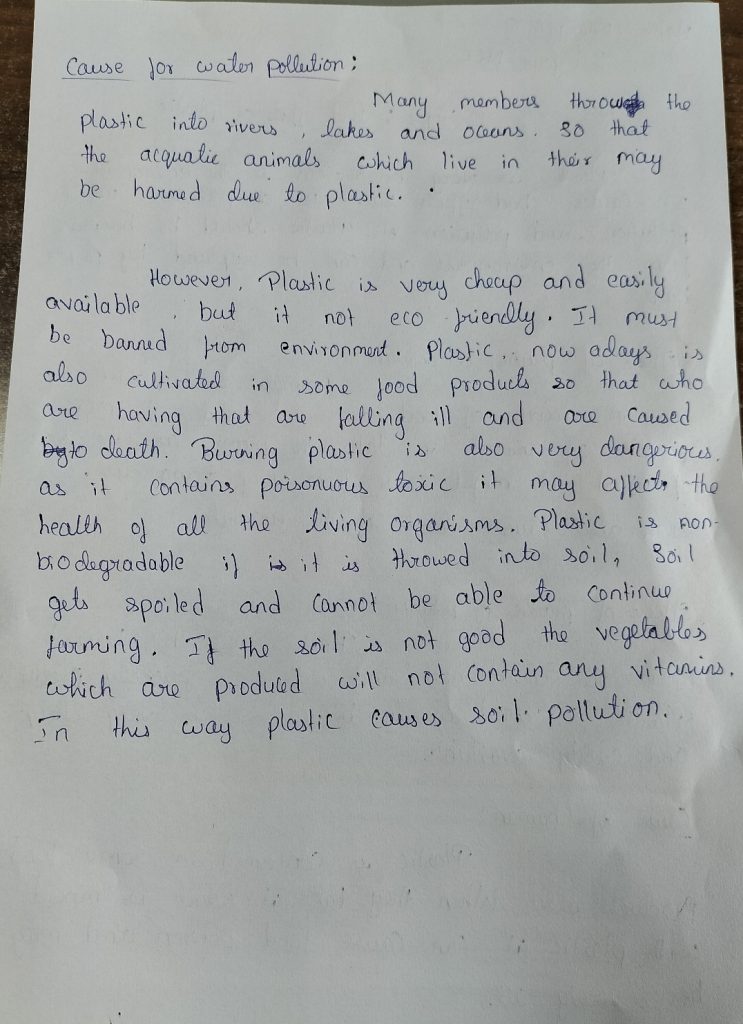 Cause for water pollution :
Many members throw the
plastic into rivers , lakes and oceans. So that
the acquatic animals which live in their may
be harmed due to plastic.
However, Plastic is very cheap and easily
available , but it not eco friendly. It must
be banned from environment. Plastic, now adays is
also cultivated in some food products so that who
are having that are falling ill and are caused
to death. Burning plastic is also very dangerious.
as it contains poisonuous toxic it may affect the
health of all the living organisms. Plastic is non-
biodegradable if it is throwed into soil, Soil
gets spoiled and cannot be able to continue
farming. If the soil is not good the vegetables
which are produced will not contain any vitamins.
In this way plastic causes soil pollution.